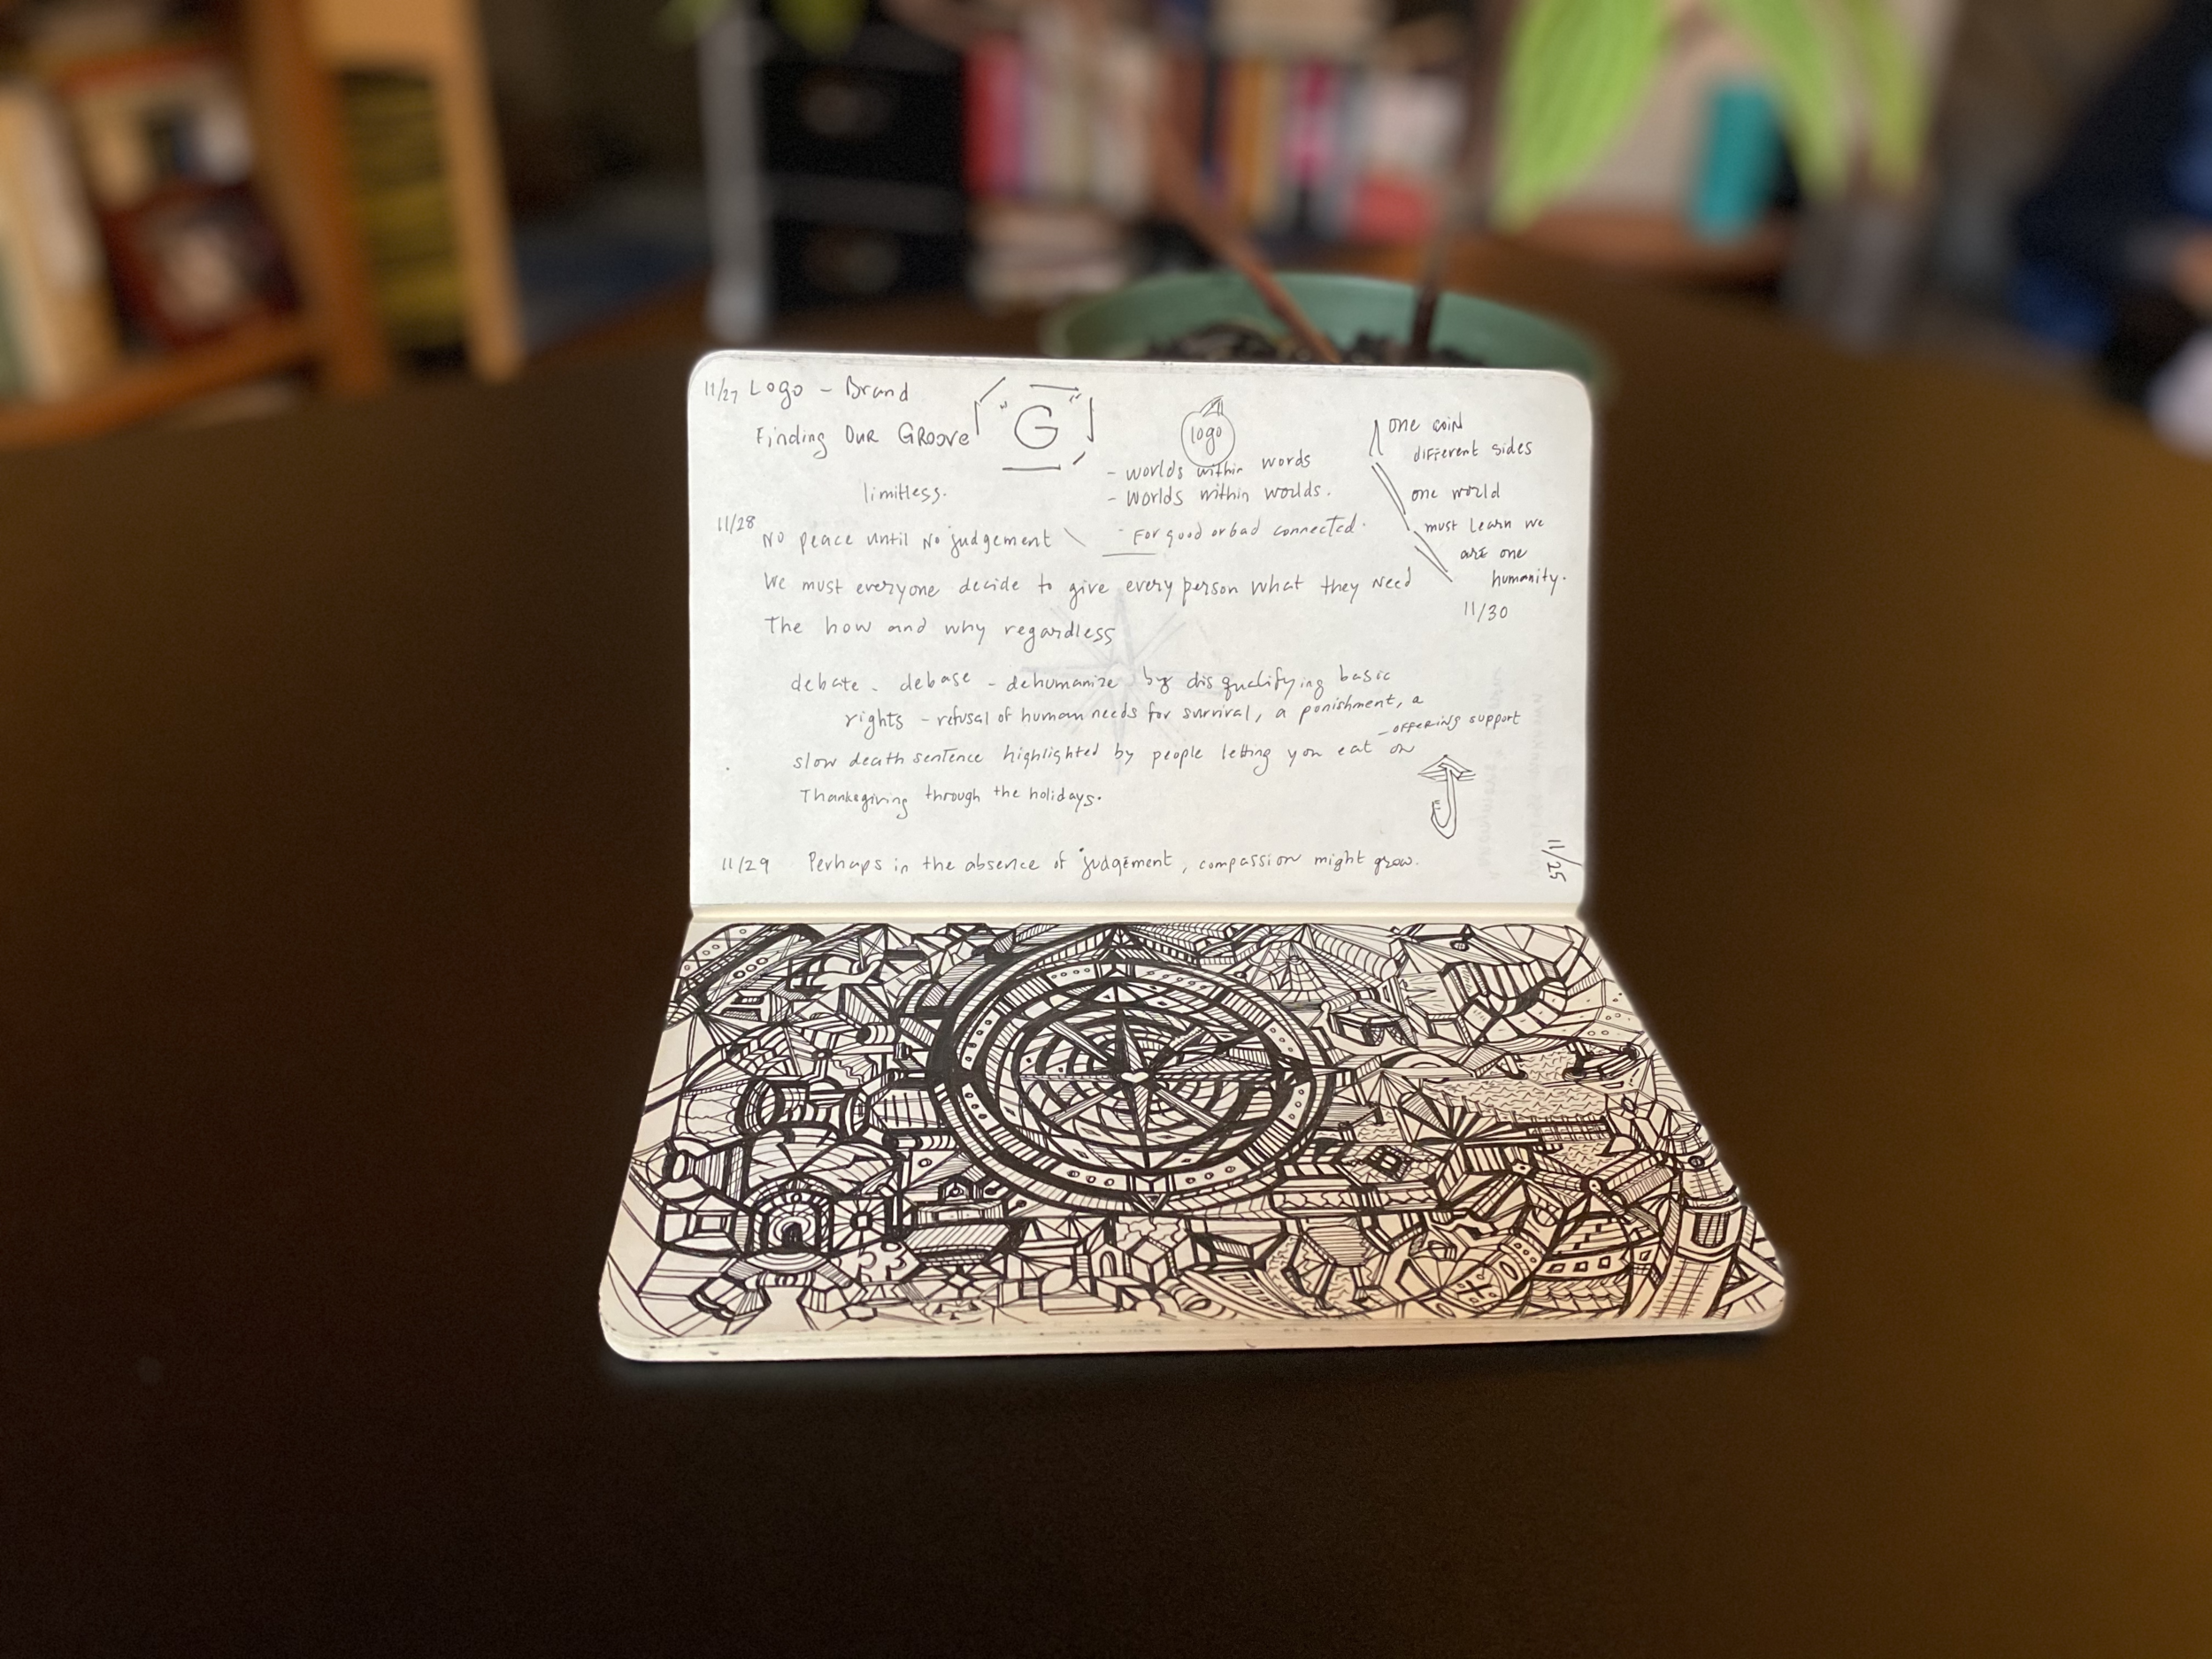 11/27 Logo - Brand
Finding Our Groove
"G"
limitless.
logo
- worlds within words
- Worlds within worlds.
- For good or bad connected.
one coin
different sides
one world
must learn we
are one
humanity.
11/30
11/28
No peace until No judgement
We must everyone decide to give every person what they need
The how and why regardless
debate - debase - dehumanize by disqualifying basic
rights - refusal of human needs for survival, a ponishment, a
slow death sentence highlighted by people letting you eat on
- offering support
Thanksgiving through the holidays.
11/29 Perhaps in the absence of judgement, compassion might grow.
11/25